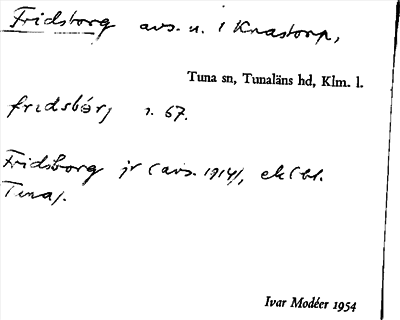 Fridsborg avs. u. 1 Knastorp,
Tuna sn, Tunaläns hd, Klm. l.
fridsbórj 1. 67.
Fridsborg jr (avs. 1914), ek (bl.
Tuna).
Ivar Modéer 1954